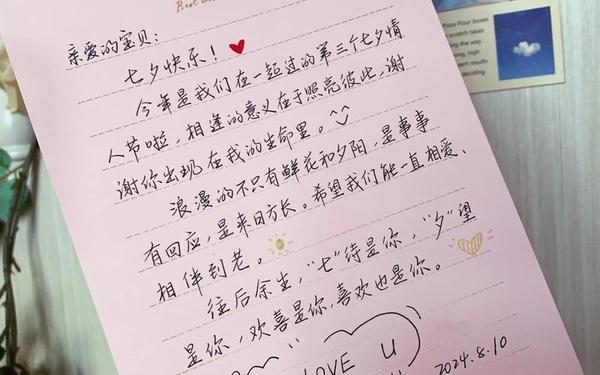 亲爱的宝贝:
七夕快乐!
今年是我们在一起过的第三个七夕情
人节啦,相逢的意义在于照亮彼此,谢
谢你出现在我的生命里。
浪漫的不只有鲜花和夕阳,是事事
有回应,是来日方长。希望我们能一直相爱、
相伴到老。
往后余生,“七”待是你,“夕”望
是你,欢喜是你,喜欢也是你。
LOVE U
2024.8.10